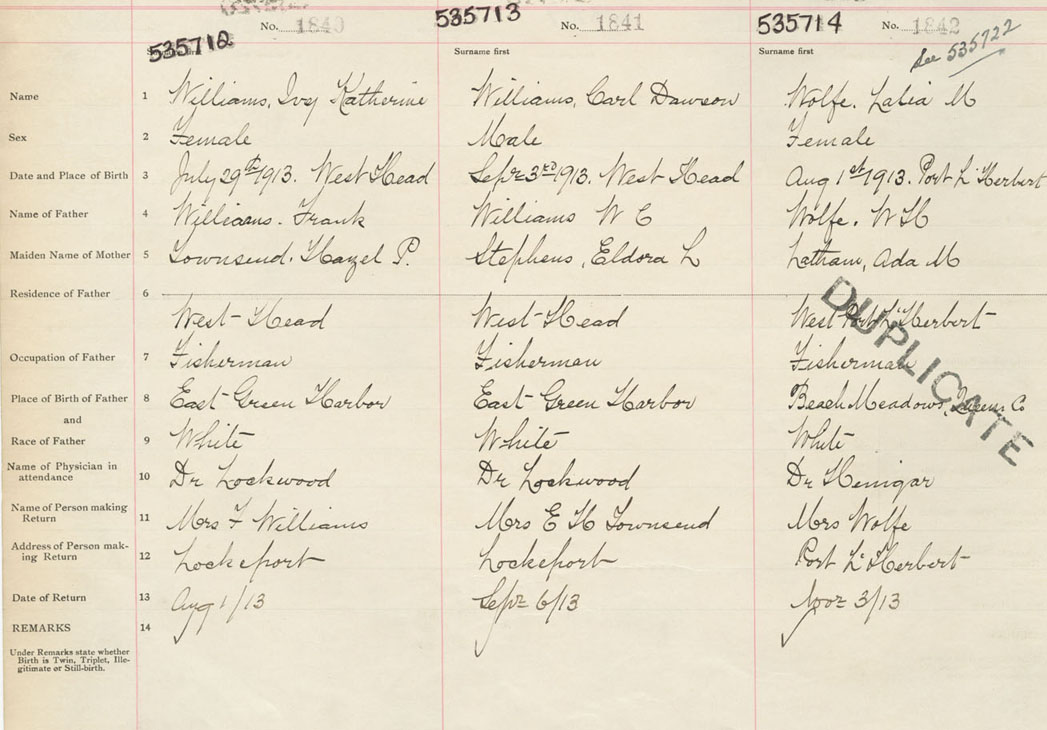 535712 No. 1840 535713 No. 1841 535714 No. 1842
See 535722
Surname first Surname first Surname first
Name 1 Williams, Ivy Katherine Williams, Carl Dawson Wolfe. Lalia M
Sex 2 Female Male Female
Date and Place of Birth 3 July 29th 1913. West Head Sept 3rd 1913. West Head Aug 1st 1913. Port L'Herbert
Name of Father 4 Williams. Frank Williams W C Wolfe. W H
Maiden Name of Mother 5 Townsend. Hazel P. Stephens, Eldora L Latham, Ada M
Residence of Father 6
West Head West Head West Port L'Herbert
Occupation of Father 7 Fisherman Fisherman Fisherman
Place of Birth of Father 8 East Green Harbor East Green Harbor Beach Meadows, Queens Co
and
Race of Father 9 White White White
Name of Physician in
attendance 10 Dr Lockwood Dr Lockwood Dr Henigar
Name of Person making
Return 11 Mrs F Williams Mrs E H Townsend Mrs Wolfe
Address of Person mak-
ing Return 12 Lockeport Lockeport Port L'Herbert
Date of Return 13 Aug 1/13 Sept 6/13 Nov 3/13
REMARKS 14
Under Remarks state whether
Birth is Twin, Triplet, Ille-
gitimate or Still-birth.
DUPLICATE